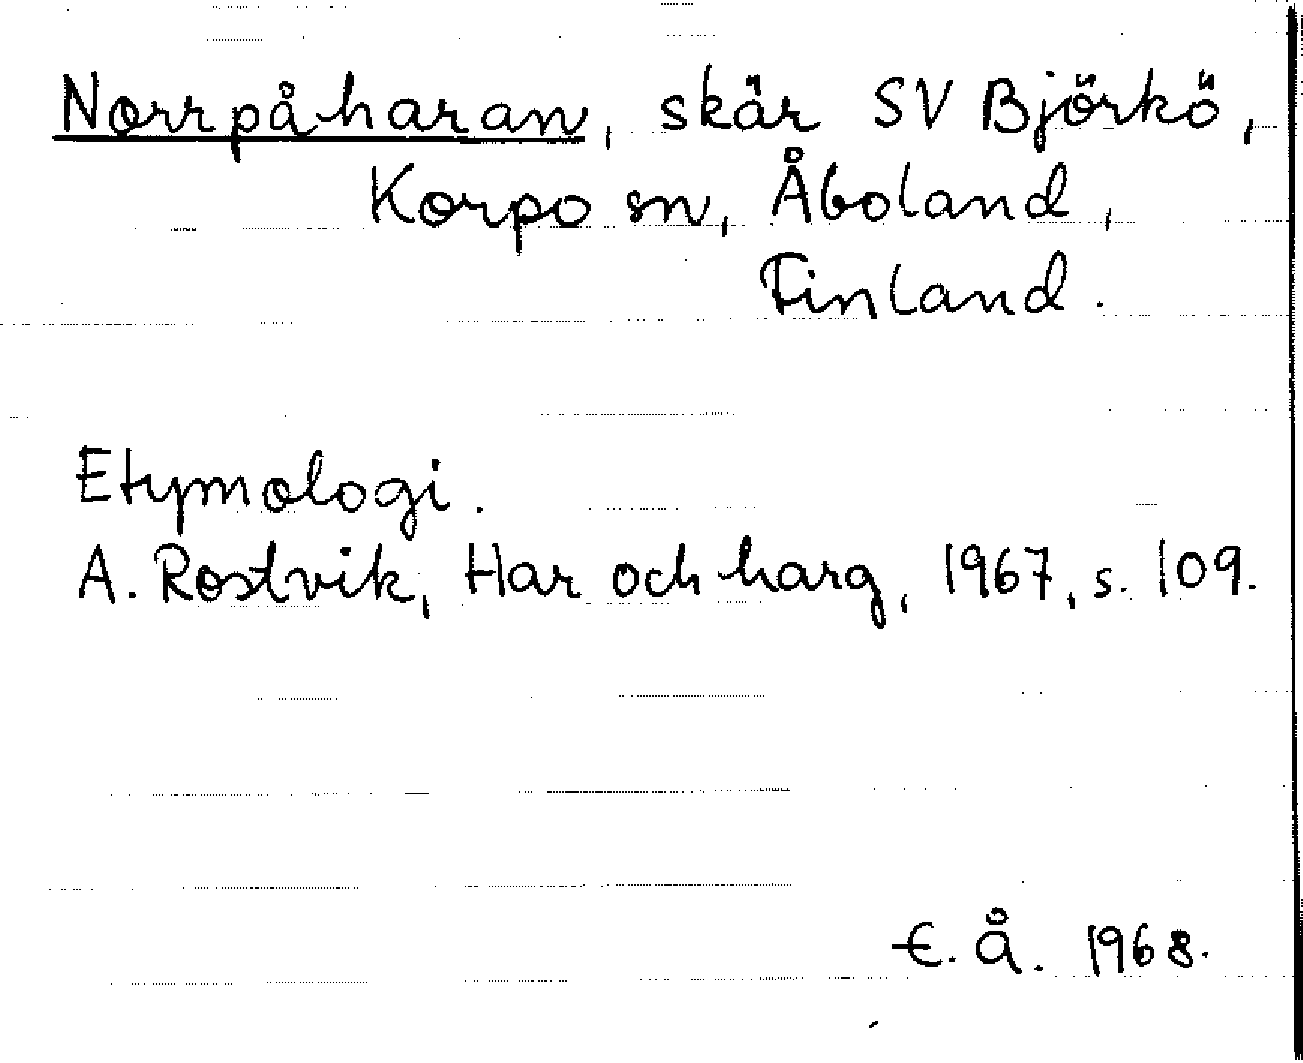 Norrpåharan, skär SV Björkö,
Korpo sn, Åboland,
Finland.
Etymologi.
A. Rostvik, Har och harg, 1967, s. 109.
E. Å. 1968.